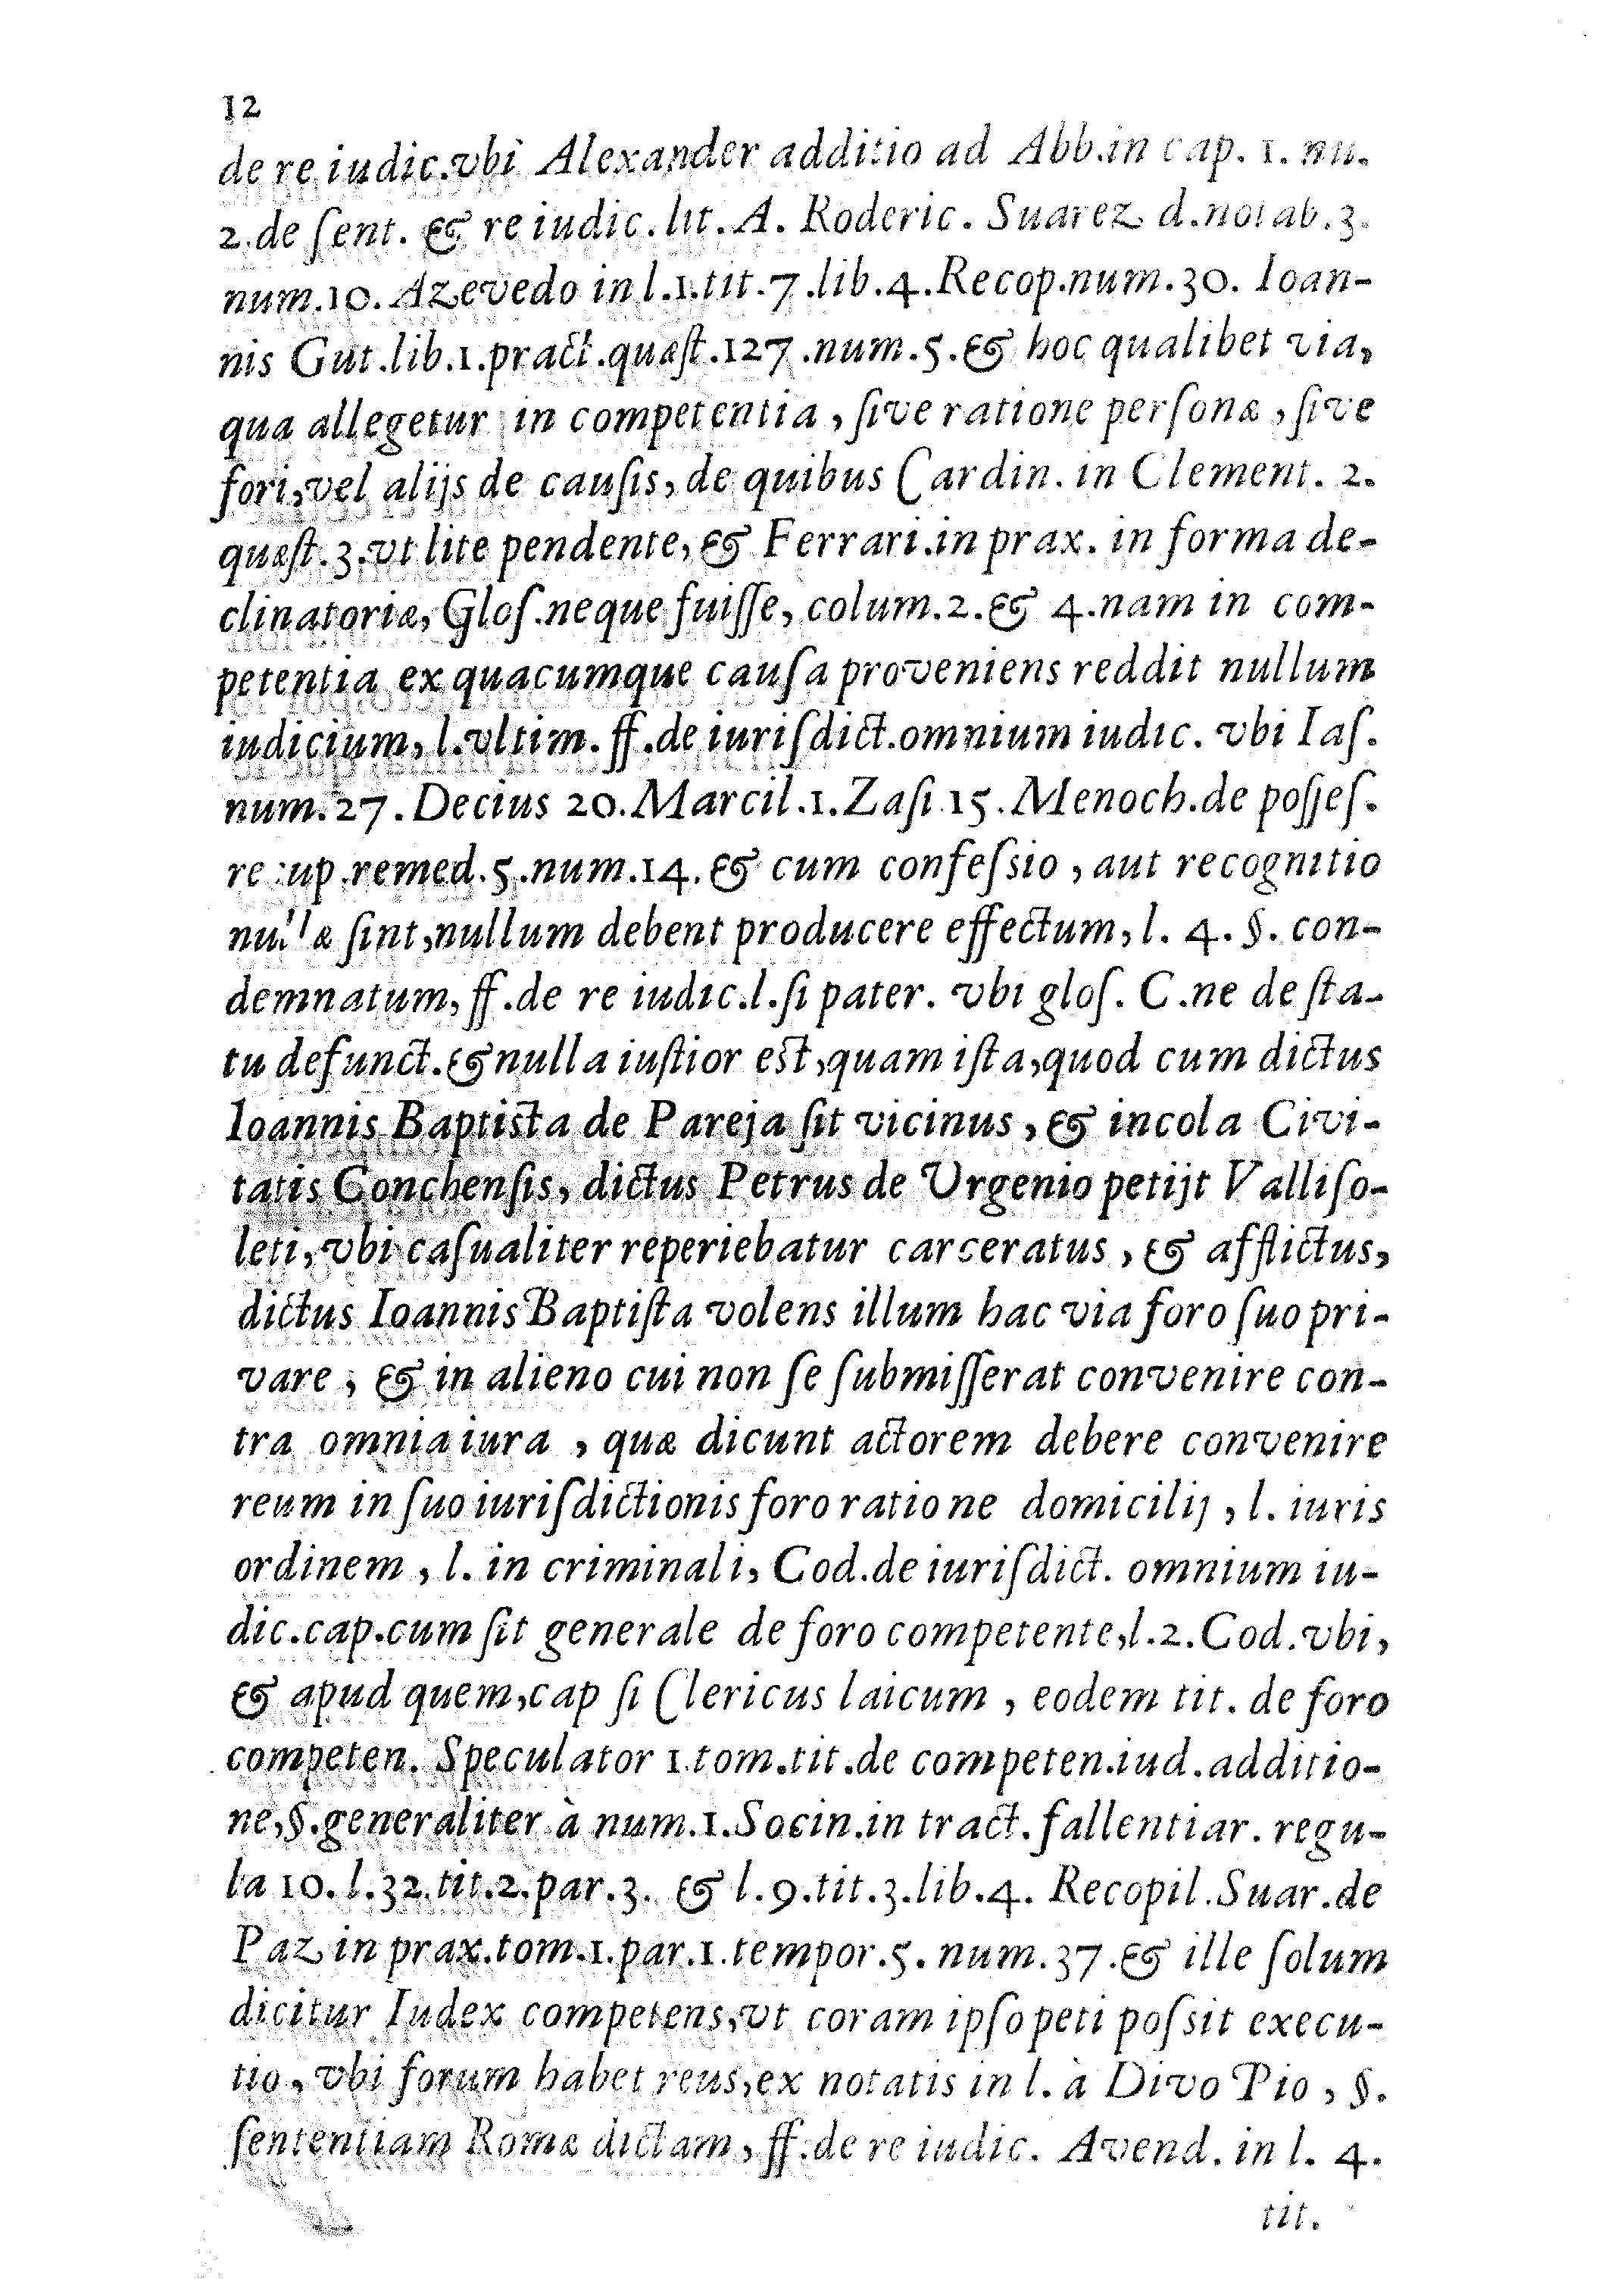 12
de re iudic. vbi Alexander additio ad Abb. in cap. 1. nu.
2. de ſent. & re iudic. lit. A. Roderic. Suarez d. notab. 3.
num. 10. Azevedo in l. 1. tit. 7. lib. 4. Recop. num. 30. Ioan-
nis Gut. lib. 1. pract. quæſt. 127. num. 5. & hoc qualibet via,
qua allegetur in competentia, ſive ratione perſonæ, ſive
fori, vel alijs de cauſis, de quibus Cardin. in Clement. 2.
quæſt. 3. vt lite pendente, & Ferrari. in prax. in forma de-
clinatoriæ, Gloſ. neque fuiſſe, colum. 2. & 4. nam in com-
petentia ex quacumque cauſa proveniens reddit nullum
iudicium, l. vltim. ff. de iuriſdict. omnium iudic. vbi Iaſ.
num. 27. Decius 20. Marcil. 1. Zaſi 15. Menoch. de poſſeſ.
recup. remed. 5. num. 14. & cum confeſsio, aut recognitio
nullæ ſint, nullum debent producere effectum, l. 4. §. con-
demnatum, ff. de re iudic. l. ſi pater. vbi gloſ. C. ne de ſta-
tu defunct. & nulla iuſtior eſt, quam iſta, quod cum dictus
Ioannis Baptista de Pareja ſit vicinus, & incola Civi-
tatis Conchenſis, dictus Petrus de Urgenio petijt Valliſo-
leti, vbi caſualiter reperiebatur carceratus, & afflictus,
dictus Ioannis Baptiſta volens illum hac via foro ſuo pri-
vare, & in alieno cui non ſe ſubmiſſerat convenire con-
tra omnia iura, quæ dicunt actorem debere convenire
reum in ſuo iuriſdictionis foro ratione domicilij, l. iuris
ordinem, l. in criminali, Cod. de iuriſdict. omnium iu-
dic. cap. cum ſit generale de foro competente, l. 2. Cod. vbi,
& apud quem, cap ſi Clericus laicum, eodem tit. de foro
competen. Speculator 1. tom. tit. de competen. iud. additio-
ne, §. generaliter à num. 1. Socin. in tract. fallentiar. regu-
la 10. l. 32. tit. 2. par. 3. & l. 9. tit. 3. lib. 4. Recopil. Suar. de
Paz in prax. tom. 1. par. 1. tempor. 5. num. 37. & ille ſolum
dicitur Iudex competens, vt coram ipſo peti poſsit execu-
tio, vbi forum habet reus, ex notatis in l. à Divo Pio, §.
ſententiam Romæ dictam, ff. de re iudic. Avend. in l. 4.
tit.